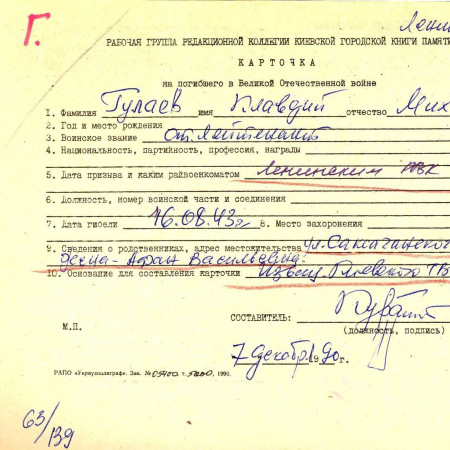 Г.
Ленин
РАБОЧАЯ ГРУППА РЕДАКЦИОННОЙ КОЛЛЕГИИ КИЕВСКОЙ ГОРОДСКОЙ КНИГИ ПАМЯТИ
КАРТОЧКА
на погибшего в Великой Отечественной войне
1. Фамилия Гулаев имя Клавдий отчество Мих
2. Год и место рождения
3. Воинское звание ст. лейтенант
4. Национальность, партийность, профессия, награды
5. Дата призыва и каким райвоенкоматом Ленинским РВК
6. Должность, номер воинской части и соединения
7. Дата гибели 16.08.43г 8. Место захоронения
9. Сведения о родственниках, адрес местожительства ул. Саксаганского
жена - Васильевна
10. Основание для составления карточки Извещ. Киевского ГВ
СОСТАВИТЕЛЬ:
(должность, подпись)
М.П.
7 декабр 1990г.
РАПО «Укрвузполиграф». Зак. № 05400 т. 5000, 1990.
63/139